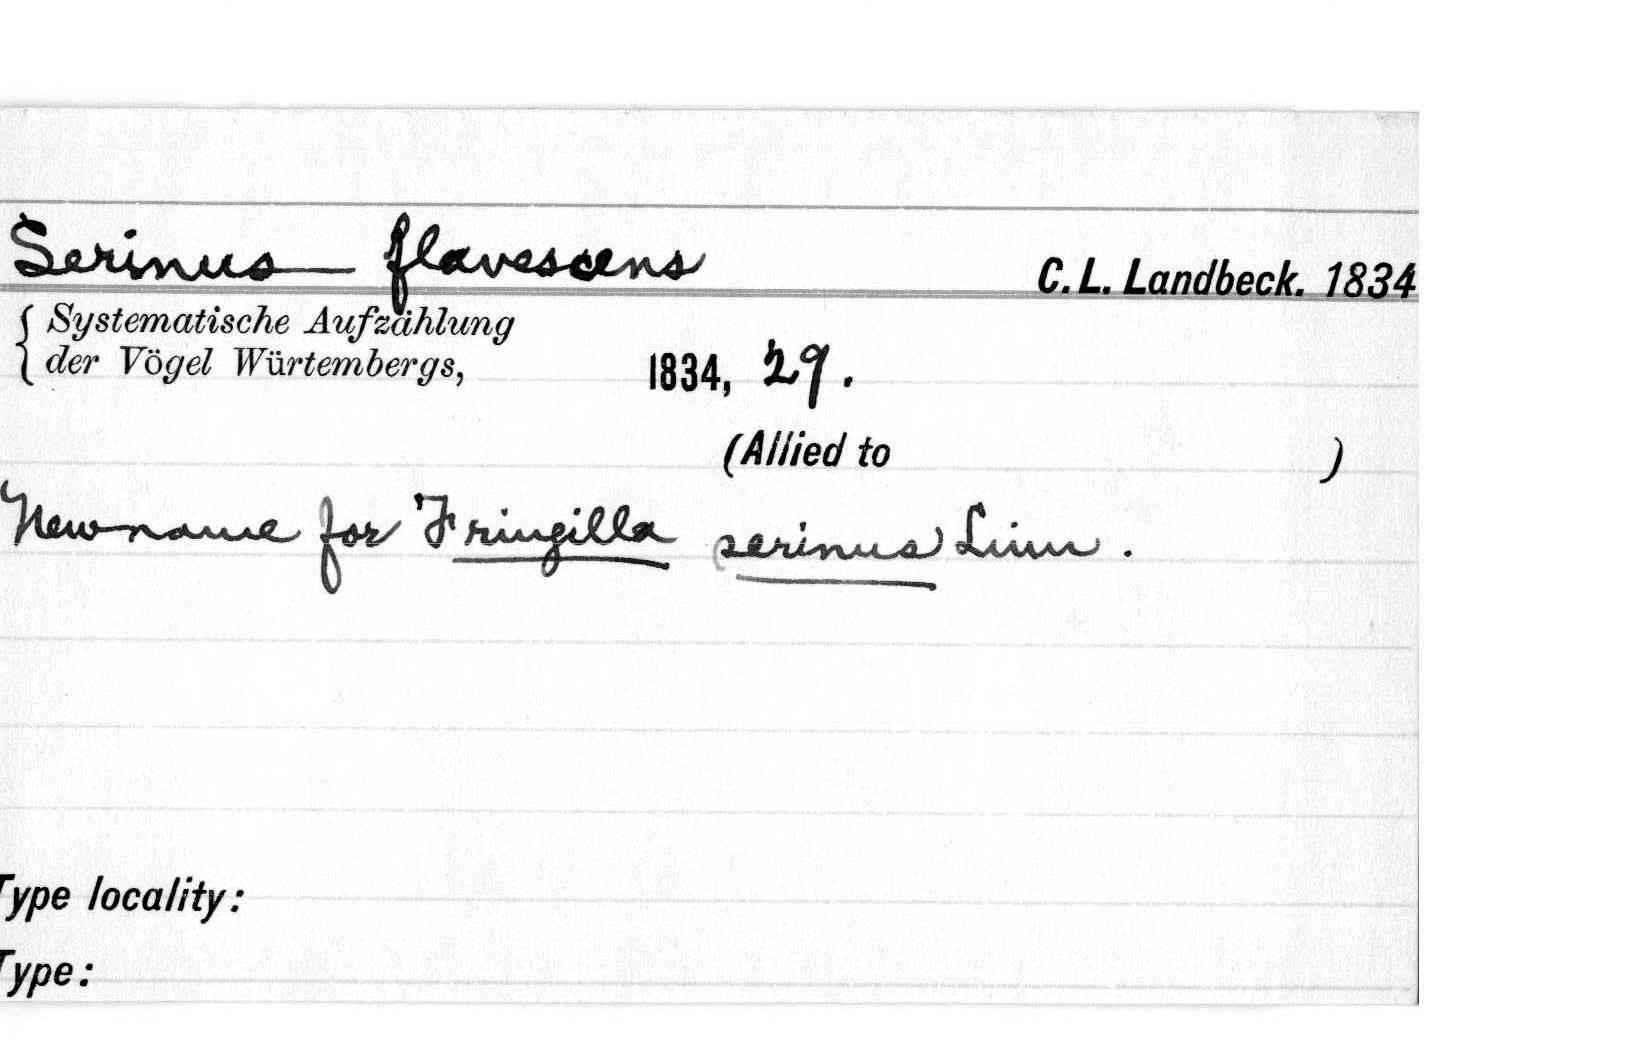 Serinus flavescens C. L. Landbeck. 1834
Systematische Aufzählung
der Vögel Würtembergs, 1834, 29.
(Allied to )
New name for Fringilla serinus Linn.
Type locality:
Type: